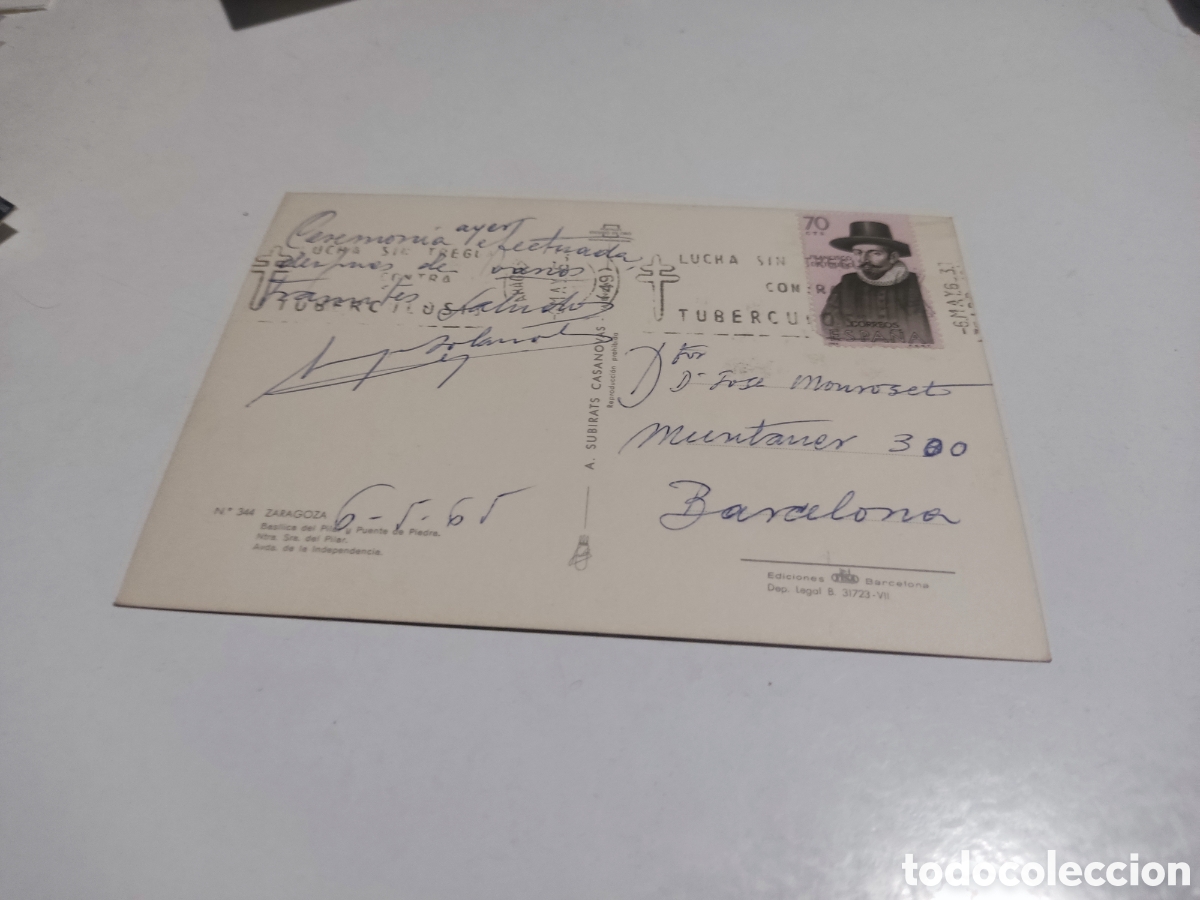 Ceremonia ayer efectuada
después de varios
trámites Saludos
LUCHA SIN TREGUA
CONTRA
TUBERCULOSIS
Nº 344 ZARAGOZA
Basílica del Pilar y Puente de Piedra.
Ntra. Sra. del Pilar.
Avda. de la Independencia.
6-5-65
A. SUBIRATS CASANOVAS
Reproducción prohibida
LUCHA SIN
CONTRA
TUBERCULO
70
CTS
ESPAÑA
6 MAY 6
Dtor
Dn José Monroset
Muntaner 300
Barcelona
Ediciones Barcelona
Dep. Legal B. 31723-VII
todocoleccion